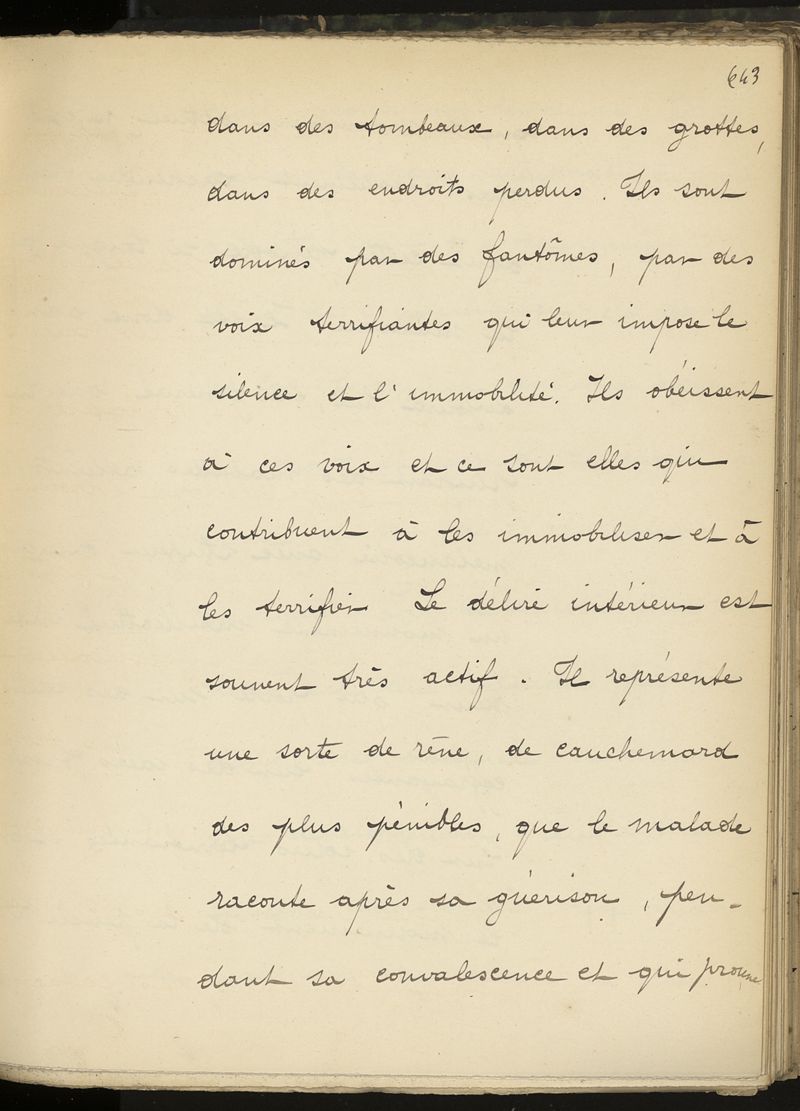 643
dans des tombeaux, dans des grottes,
dans des endroits perdus. Ils sont
dominés par des fantômes, par des
voix terrifiantes qui leur impose le
silence et l'immobilité. Ils obéissent
à ces voix et ce sont elles qui
contribuent à les immobiliser et à
les terrifier Le délire intérieur est
souvent très actif. Il représente
une sorte de rêve, de cauchemard
des plus pénibles, que le malade
raconte après sa guérison, pen-
dant sa convalescence et qui prouve